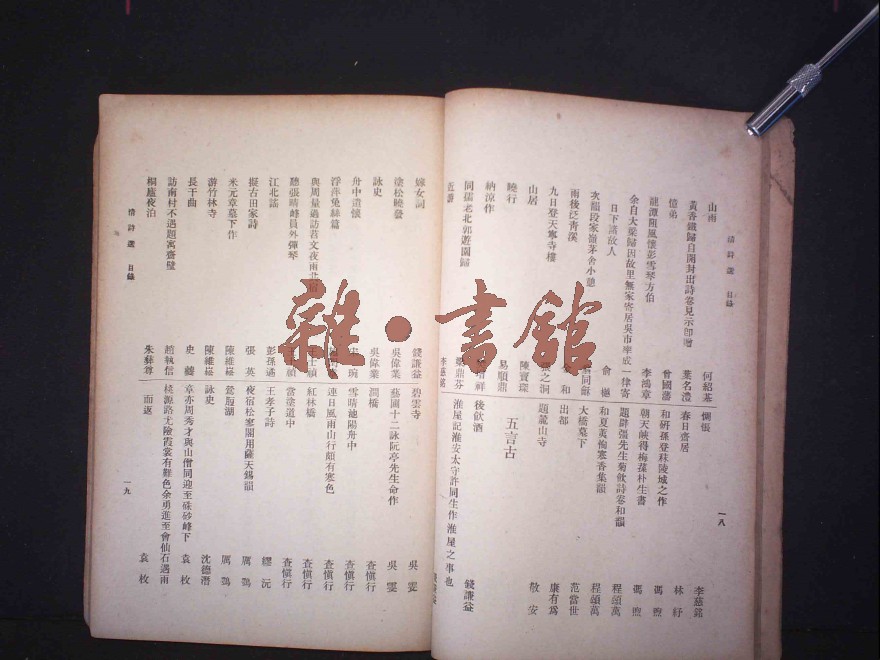 清詩選 目錄
一八
山雨 何紹基
黃香鐵歸自開封出詩卷見示卽贈 葉名澧
憶弟 曾國藩
龍潭阻風懷彭雪琴方伯 李鴻章
余自大梁歸因故里無家寄居吳市率成一律寄
日下諸故人 俞樾
次韻段家嶺茅舍小憩
雨後泛青溪
九日登天寧寺樓 之洞
山居 陳寶琛
曉行 易順鼎
納涼作 祥
同孺老北郭遊園歸 鼎芬
近游 李慈銘
惆悵 李慈銘
春日齋居 林紓
和研孫登秣陵城之作 馮煦
朝天峽得梅葆朴生書 馮煦
題辟彊先生菊飲詩卷和韻 程頌萬
和夏黃梅寒香集韻 程頌萬
大橋墓下 范當世
出都 康有爲
題麓山寺 敬安
五言古
後飲酒 錢謙益
淮屋記淮安太守許同生作淮屋之事也 錢謙益
嫁女詞 錢謙益
塗松曉發 吳偉業
詠史 吳偉業
舟中遣懷 宋琬
浮萍兔絲篇
與周量過訪苕文夜雨共宿 王士禎
聽張晴峰員外彈琴 王士禎
江北謠 彭孫遹
擬古田家詩 張英
米元章墓下作 陳維崧
游竹林寺 陳維崧
長干曲 史夔
訪南村不遇題寓齋壁 趙執信
桐廬夜泊 朱彝尊
碧雲寺 吳雯
藝圃十二詠阮亭先生命作 吳雯
澗橋 查愼行
雪晴池陽舟中 查愼行
連日風雨山行頗有寒色 查愼行
紅林橋 查愼行
當塗道中 查愼行
王孝子詩 繆沅
夜宿松寥閣用薩天錫韻 厲鶚
鴛脰湖 厲鶚
詠史 沈德潛
章亦周秀才與山僧同迎至硃砂峰下 袁枚
桃源路尤險霞裳有難色余勇進至會仙石遇雨
而返 袁枚
清詩選 目錄
一九
雜·書館